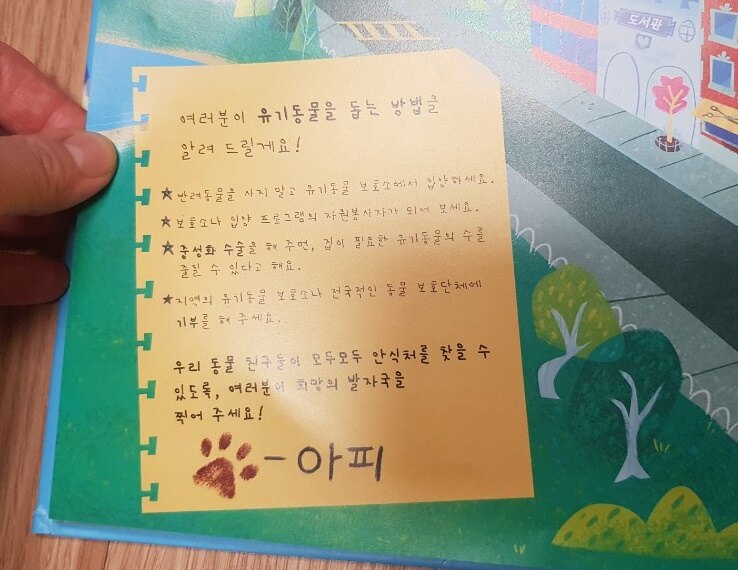 도서관
여러분이 유기동물을 돕는 방법을
알려 드릴게요!
★반려동물을 사지 말고 유기동물 보호소에서 입양하세요.
★보호소나 입양 프로그램의 자원봉사자가 되어 보세요.
★중성화 수술을 해 주면, 집이 필요한 유기동물의 수를
줄일 수 있다고 해요.
★지역의 유기동물 보호소나 전국적인 동물 보호단체에
기부를 해 주세요.
우리 동물 친구들이 모두모두 안식처를 찾을 수
있도록, 여러분이 희망의 발자국을
찍어 주세요!
-아피